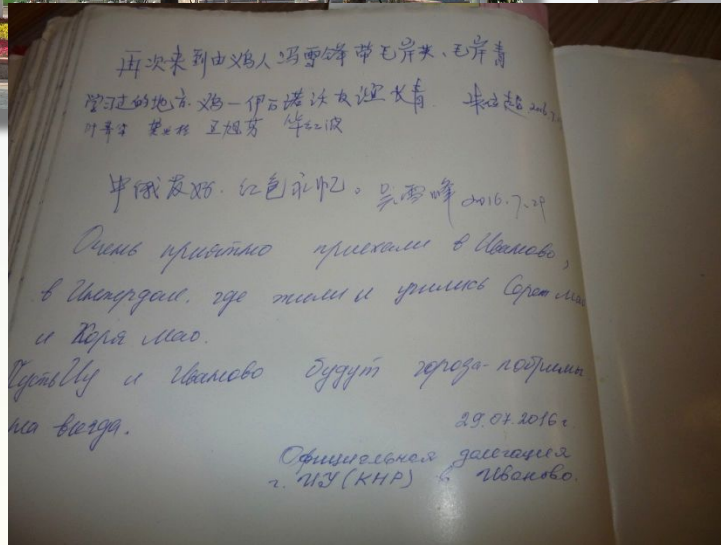 再次来到由义乌人冯雪锋带毛岸英、毛岸青
学习过的地方. 义乌—伊万诺沃友谊长青. 2016.7.
王旭芳
中俄友好. 红色永忆。吴雪峰 2016.7.29
Очень приятно приехали в Иваново,
в Интердале. где жили и учились Сережа Мао
и Коря Мао.
Пусть Иу и Иваново будут города-побримы
на всегда.
29.07.2016 г.
Официальная делегация
г. ИУ (КНР) в Иваново.